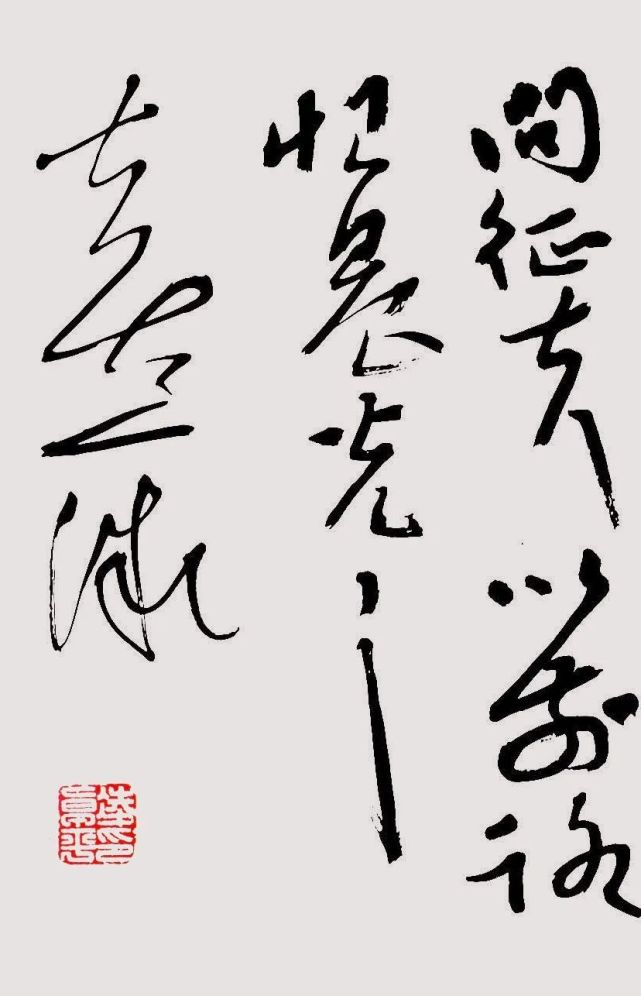 问征夫以前路
恨晨光之
熹微